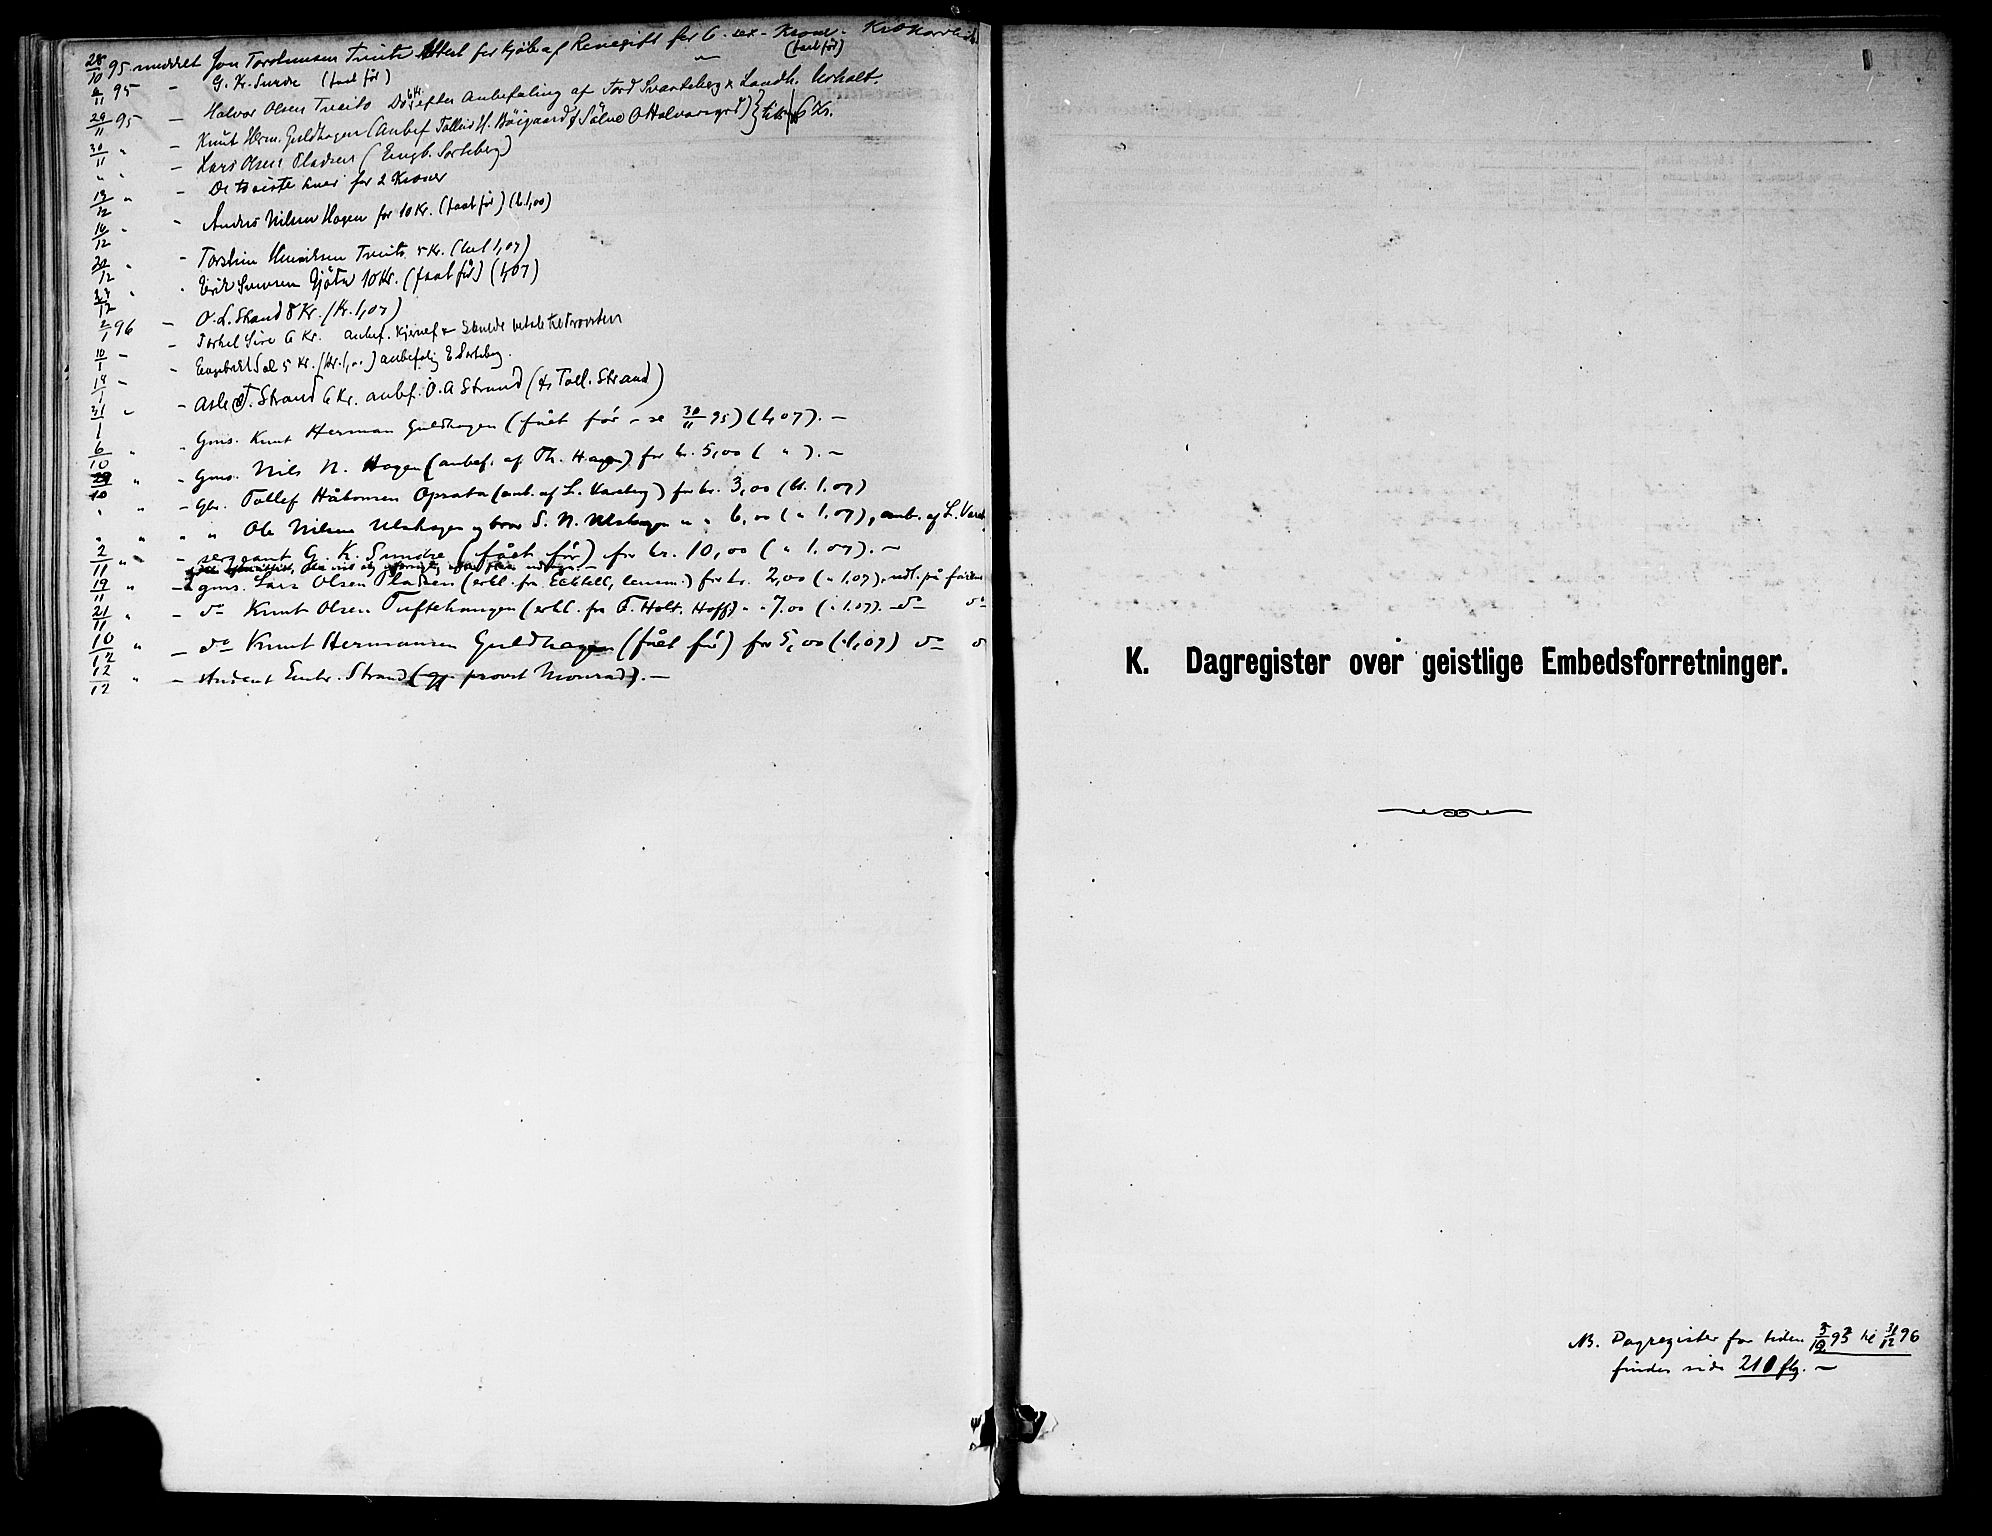 28/10 95 meddelt Jon Torstensen Treito Attest for Kjöb af Revegift for 6 - sex - Kroner.
6/11 95 - G. Kr. Sundre (faat för) - (faat för)
29/11 95 - Halvor Olsen Treito Do 6 Kr. efter Anbefaling af Tord Svarteberg & Landh.
30/11 " - Knut Herm. Guldhagen (Anbef Tolleiv H. Böigaard & Sölve O Halvorsgrd) 6 Kr.
" " - Lars Olsen Pladsen (Engb. Sorteberg)
13/12 " - De to sidste hver for 2 Kroner
16/12 " - Anders Nilsen Hagen for 10 Kr. (faat för) (k. 1,00)
20/12 " - Torstein Henriksen Treito 5 Kr. (bet 1,07)
27/12 " - Erik Svensen Gjöto 10 Kr. (faat för) (1,07)
2/1 96 - O. L. Strand 8 Kr. (Kr. 1,07)
10/1 - - Torkel Sire 6 Kr. anbef.
14/1 - - Engebret Sol 5 Kr. (Kr. 1,00) anbefalg E Sorteberg.
31/1 - - Asle T. Strand 6 Kr. anbef. O. A Strand (& Toll. Strand)
6/10 " - Gms. Knut Herman Guldhagen (fåt för - se 30/11 95) (1,07). -
29/10 " - Gms. Nils N. Hagen (anbef. af Th. Hagen) for kr. 5,00 ( " ). -
" " - Gbr. Tollef Håkonsen Opsata (anb. af L. Vareberg) for kr. 3,00 (kr. 1,07)
" " " " Ole Nilsen Ulshagen og bror S. N. Ulshagen " " 6,00 ( " 1,07), anb. af L. Vareb.
2/11 " - sergeant G. K. Sundre (fåt för) for kr. 10,00 ( " 1,07). -
19/11 " - gms. Lars Olsen Pladsen (erkl. fra lensm.) for kr. 2,00 ( " 1,07), udl. på
21/11 " - do Knut Olsen Tuftehaugen (erkl. fra T. Holt, Hoff) " " 7,00 ( " 1,07). do do
10/12 " - do Knut Hermansen Guldhagen (fåt för) for 5,00 ( " 1,07) do do
12/12 " - Student Embr. Strand (gj. provst Monrad). -
K. Dagregister over geistlige Embedsforretninger.
NB. Dagregister for tiden 3/12 93 til 31/12 96
findes side 210 flg. -